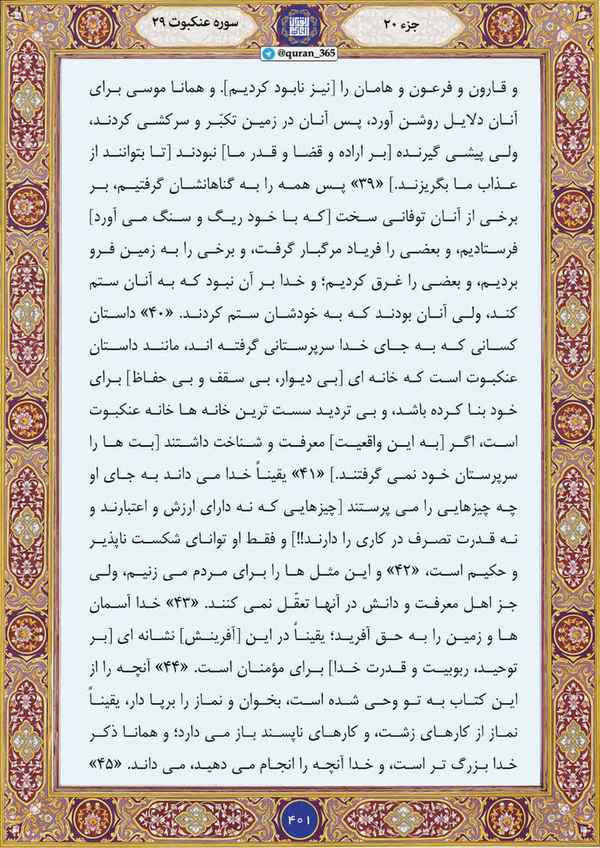 جزء ۲۰
سوره عنکبوت ۲۹
@quran_365
و قارون و فرعون و هامان را [نیز نابود کردیم]. و همانا موسی برای
آنان دلایل روشن آورد، پس آنان در زمین تکبّر و سرکشی کردند،
ولی پیشی گیرنده [بر اراده و قضا و قدر ما] نبودند [تا بتوانند از
عذاب ما بگریزند.] «۳۹» پس همه را به گناهانشان گرفتیم، بر
برخی از آنان توفانی سخت [که با خود ریگ و سنگ می آورد]
فرستادیم، و بعضی را فریاد مرگبار گرفت، و برخی را به زمین فرو
بردیم، و بعضی را غرق کردیم؛ و خدا بر آن نبود که به آنان ستم
کند، ولی آنان بودند که به خودشان ستم کردند. «۴۰» داستان
کسانی که به جای خدا سرپرستانی گرفته اند، مانند داستان
عنکبوت است که خانه ای [بی دیوار، بی سقف و بی حفاظ] برای
خود بنا کرده باشد، و بی تردید سست ترین خانه ها خانه عنکبوت
است، اگر [به این واقعیت] معرفت و شناخت داشتند [بت ها را
سرپرستان خود نمی گرفتند.] «۴۱» یقیناً خدا می داند به جای او
چه چیزهایی را می پرستند [چیزهایی که نه دارای ارزش و اعتبارند و
نه قدرت تصرف در کاری را دارند!!] و فقط او توانای شکست ناپذیر
و حکیم است، «۴۲» و این مثل ها را برای مردم می زنیم، ولی
جز اهل معرفت و دانش در آنها تعقّل نمی کنند. «۴۳» خدا آسمان
ها و زمین را به حق آفرید؛ یقیناً در این [آفرینش] نشانه ای [بر
توحید، ربوبیت و قدرت خدا] برای مؤمنان است. «۴۴» آنچه را از
این کتاب به تو وحی شده است، بخوان و نماز را برپا دار، یقیناً
نماز از کارهای زشت، و کارهای ناپسند باز می دارد؛ و همانا ذکر
خدا بزرگ تر است، و خدا آنچه را انجام می دهید، می داند. «۴۵»
۴۰۱